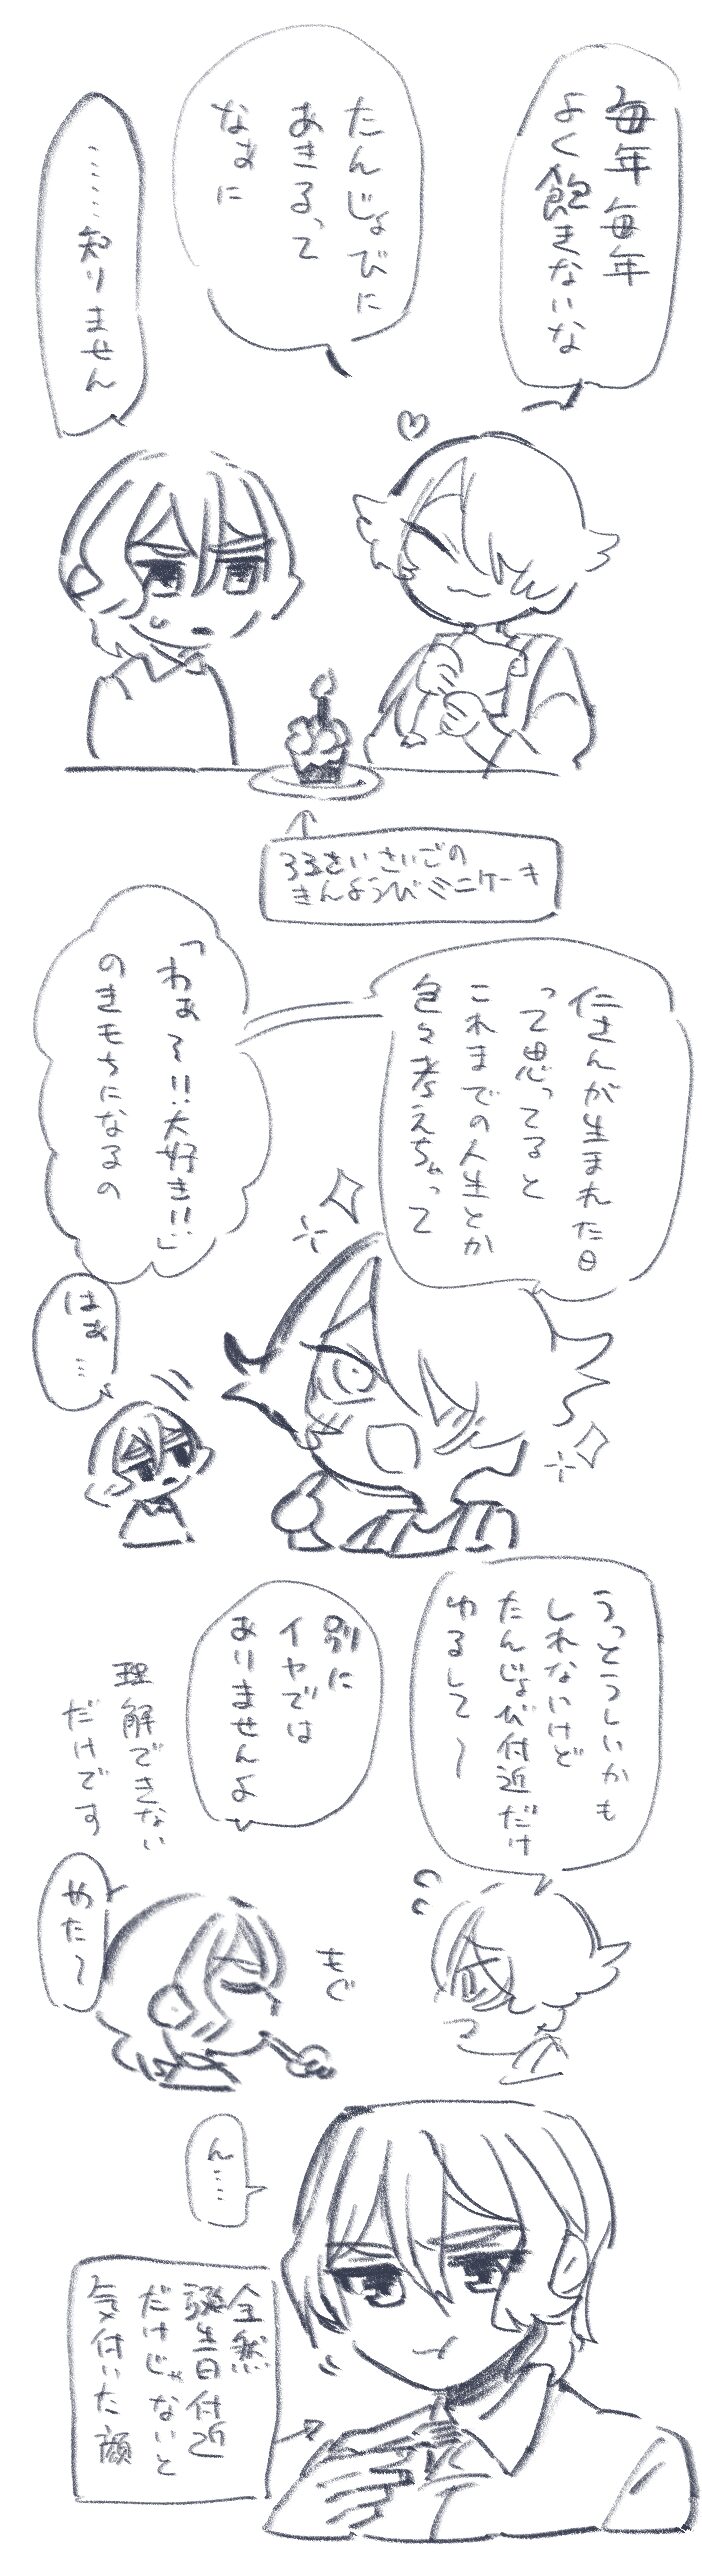 毎年毎年
よく飽きないな
たんじょびに
あきるって
なぁに
……知りません
33さいさいごの
きんようびミニケーキ
仁さんが生まれた日
って思ってると
これまでの人生とか
色々考えちゃって
「わぁ〜!!大好き!!」
のきもちになるの
はぁ…
うっとうしいかも
しれないけど
たんじょび付近だけ
ゆるして〜
別に
イヤでは
ありませんよ
理解できない
だけです
やた〜
もぐ
ん……
全然
誕生日付近
だけじゃないと
気付いた顔